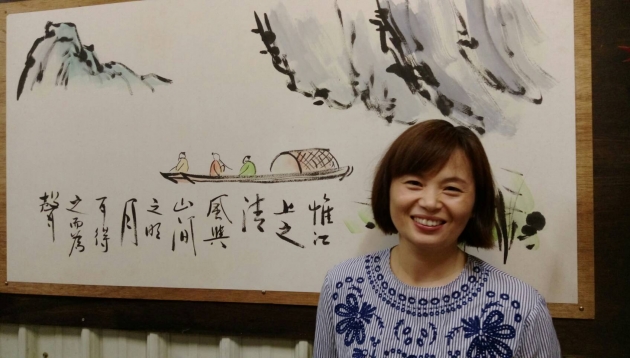 惟江
上之
清
風與
山間
之明
月
耳得
之而為
聲